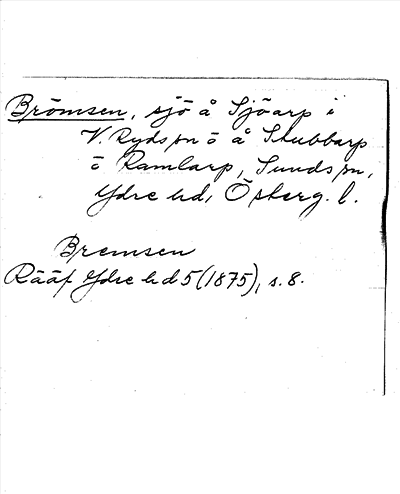 Brömsen, sjö å Sjöarp i
V. Ryds sn o å Stubbarp
o Ramlarp, Sunds sn,
Ydre hd, Östergötl. l.
Bremsen
Rääf Ydre hd 5 (1875), s. 8.